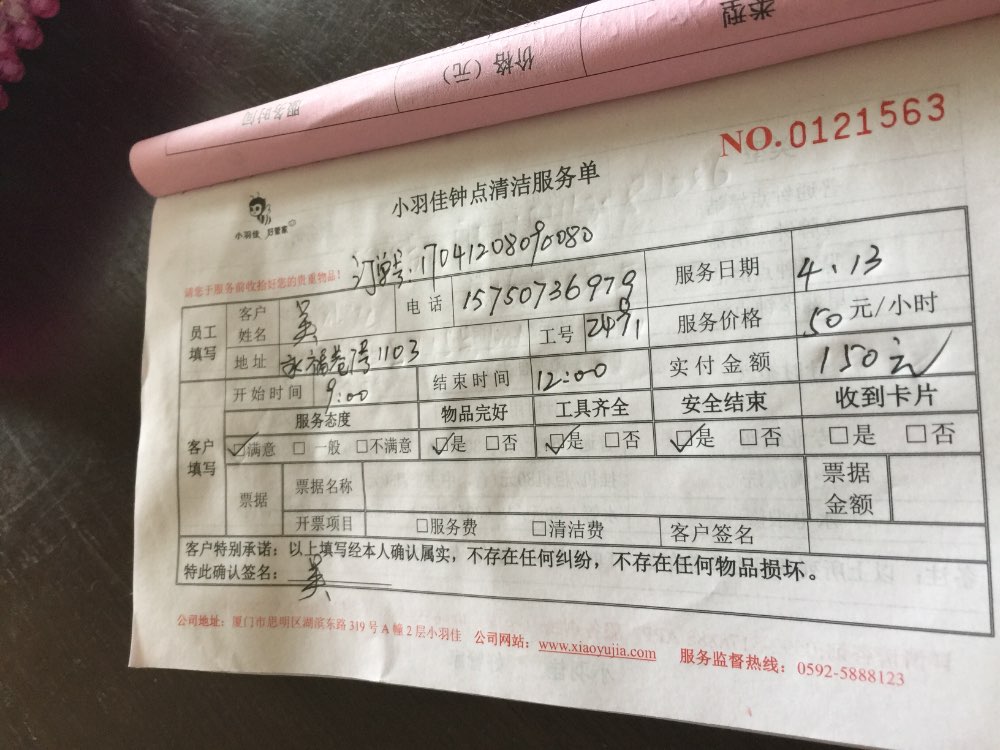 类型
价格（元）
服务时间
NO.0121563
小羽佳钟点清洁服务单
小羽佳 好管家
请您于服务前收拾好您的贵重物品！
订单号:17041208090080
员工填写
客户姓名 吴 电话 15750736979 服务日期 4.13
地址 永福巷 1103 工号 服务价格 50元/小时
客户填写
开始时间 9:00 结束时间 12:00 实付金额 150元
服务态度 物品完好 工具齐全 安全结束 收到卡片
☑满意 □一般 □不满意 ☑是 □否 ☑是 □否 ☑是 □否 □是 □否
票据 票据名称 票据金额
开票项目 □服务费 □清洁费 客户签名
客户特别承诺：以上填写经本人确认属实，不存在任何纠纷，不存在任何物品损坏。
特此确认签名：吴
公司地址：厦门市思明区湖滨东路319号A幢2层小羽佳 公司网站：www.xiaoyujia.com 服务监督热线：0592-5888123